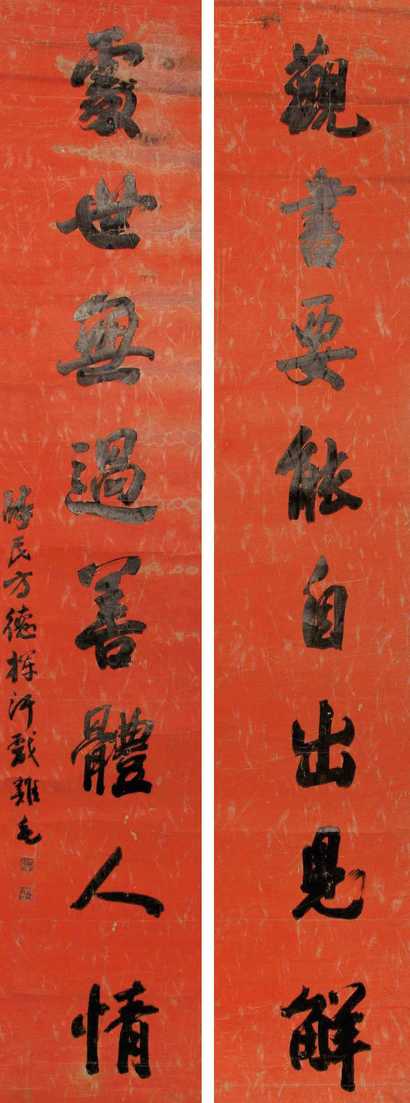 觀書要能自出見解
處世無過善體人情
民方德
雞毛